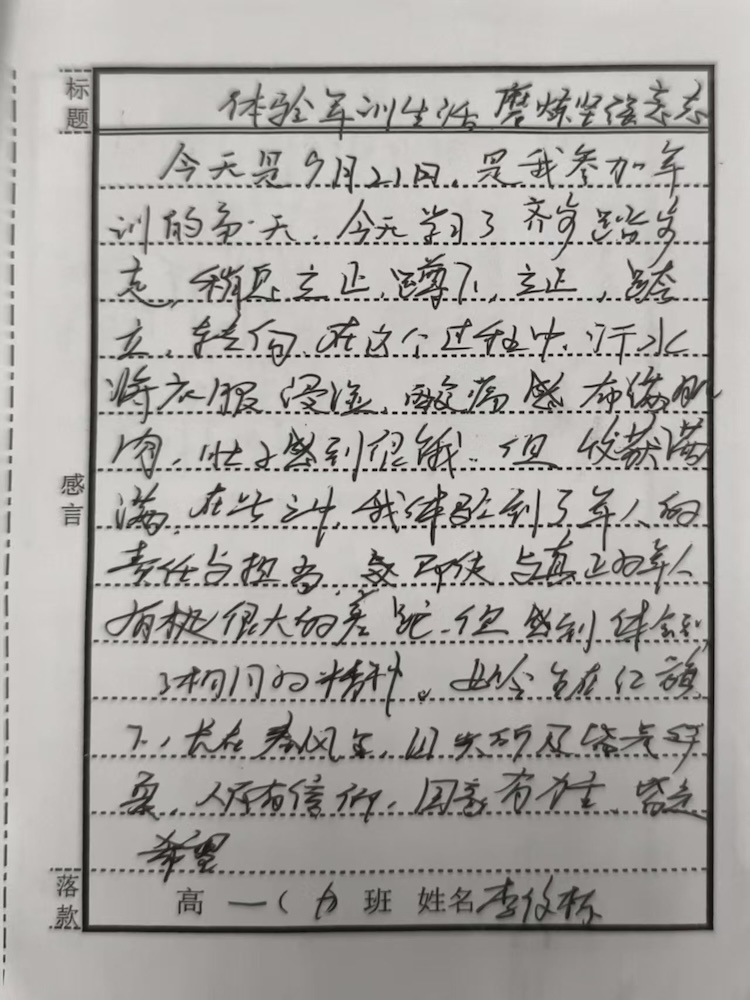 标题
体验军训生活 磨炼坚强意志
今天是9月21日，是我参加军
训的第一天，今天学习了齐步踏步
走，稍息立正，蹲下，立正，跨
立，转向，在这个过程中，汗水
将衣服浸湿，酸痛感布满肌
肉，肚子感到很饿，但收获满
满，在此之中，我体验到了军人的
责任与担当，即使与真正的军人
有极很大的差距，但感到体会到
了相同的精神。如今生在红旗
下，长在春风里，目光所及皆是
人民有信仰，国家有力量，皆是
希望
感言
落款
高一（ ）班 姓名 李